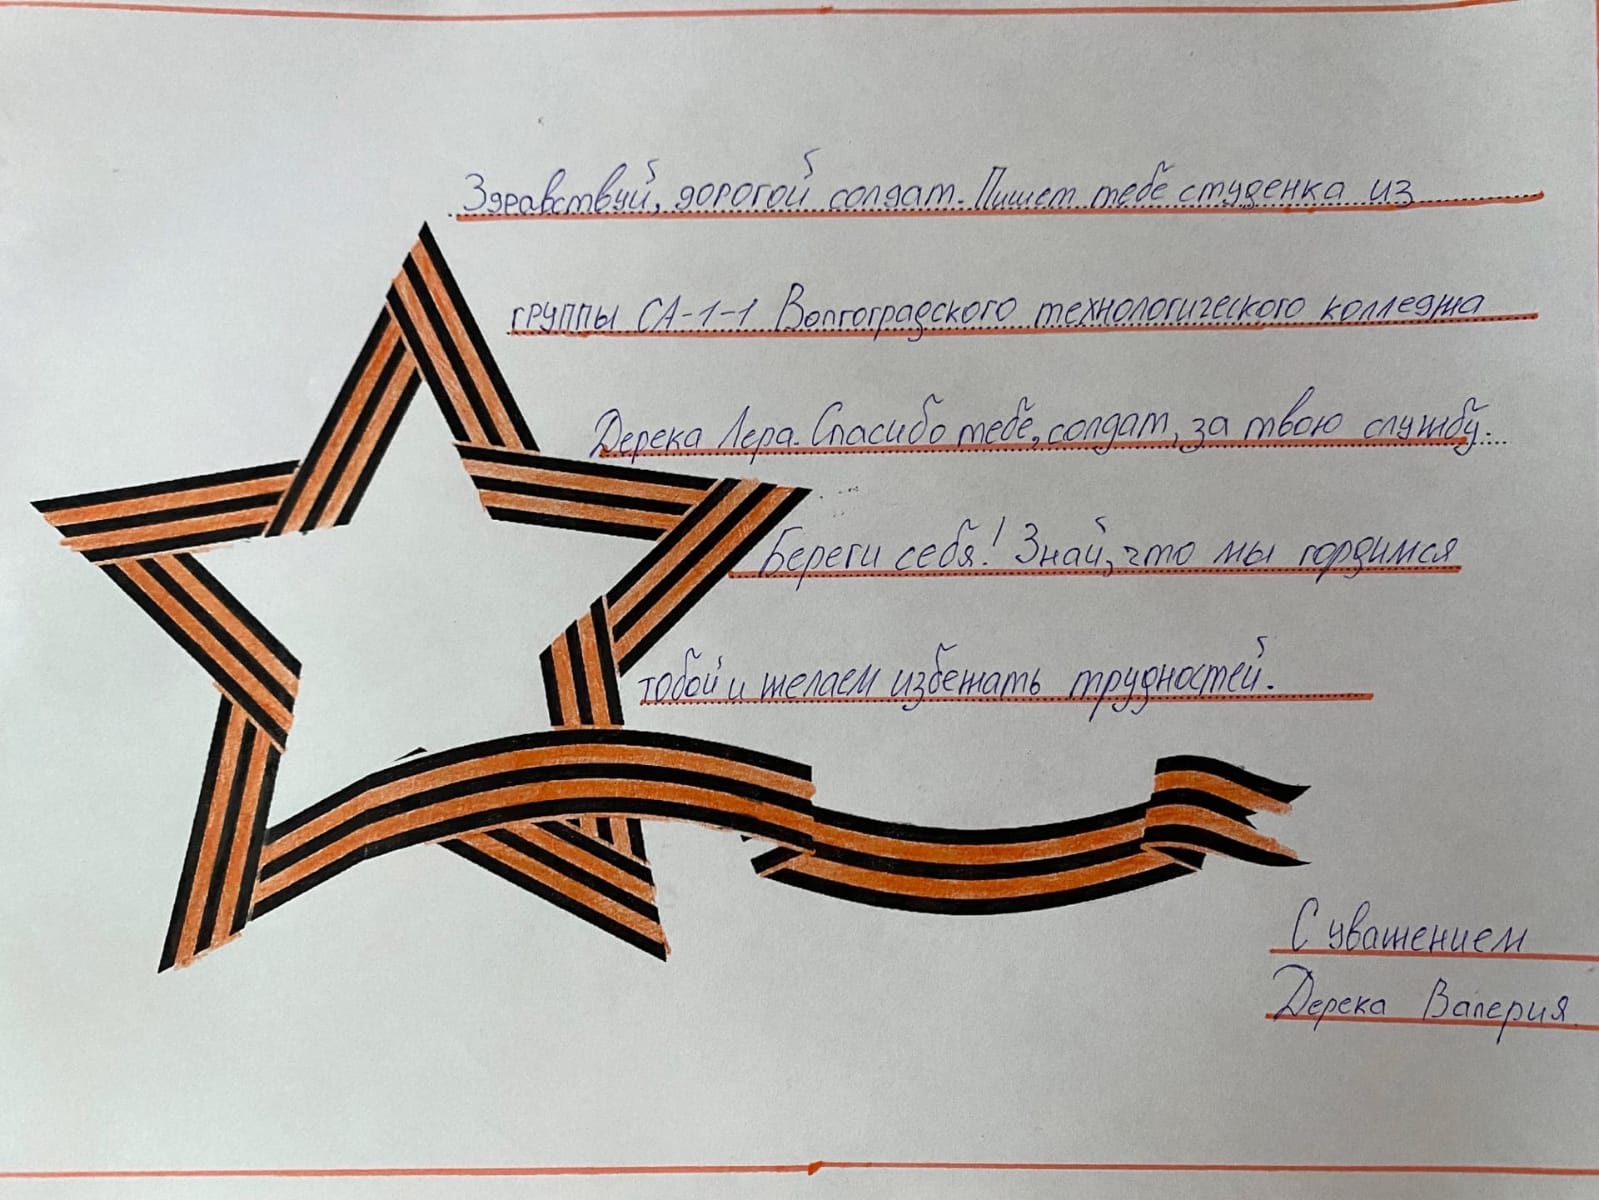 Здравствуй, дорогой солдат. Пишет тебе студенка из
группы СА-1-1 Волгоградского технологического колледжа
Дерека Лера. Спасибо тебе, солдат, за твою службу.
Береги себя! Знай, что мы гордимся
тобой и желаем избежать трудностей.
С уважением
Дерека Валерия